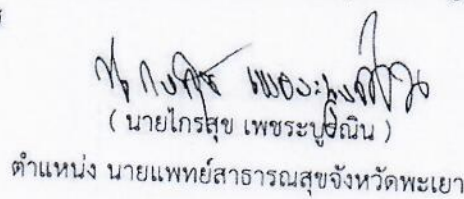 ( นายไกรสุข เพชระบูรณิน )
ตำแหน่ง นายแพทย์สาธารณสุขจังหวัดพะเยา